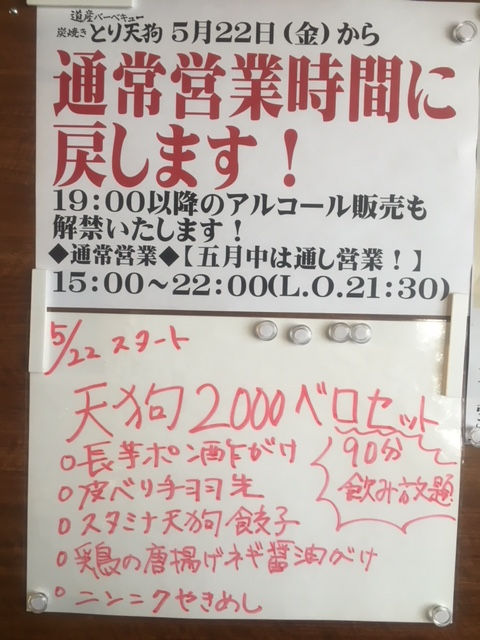 道産バーベキュー
炭焼き とり天狗 5月22日(金)から
通常営業時間に
戻します!
19:00以降のアルコール販売も
解禁いたします!
◆通常営業◆【五月中は通し営業!】
15:00~22:00(L.O.21:30)
5/22 スタート
天狗2000ベロセット
90分
飲み放題
○長芋ポン酢がけ
○皮べり手羽先
○スタミナ天狗餃子
○鶏の唐揚げネギ醤油がけ
○ニンニクやきめし